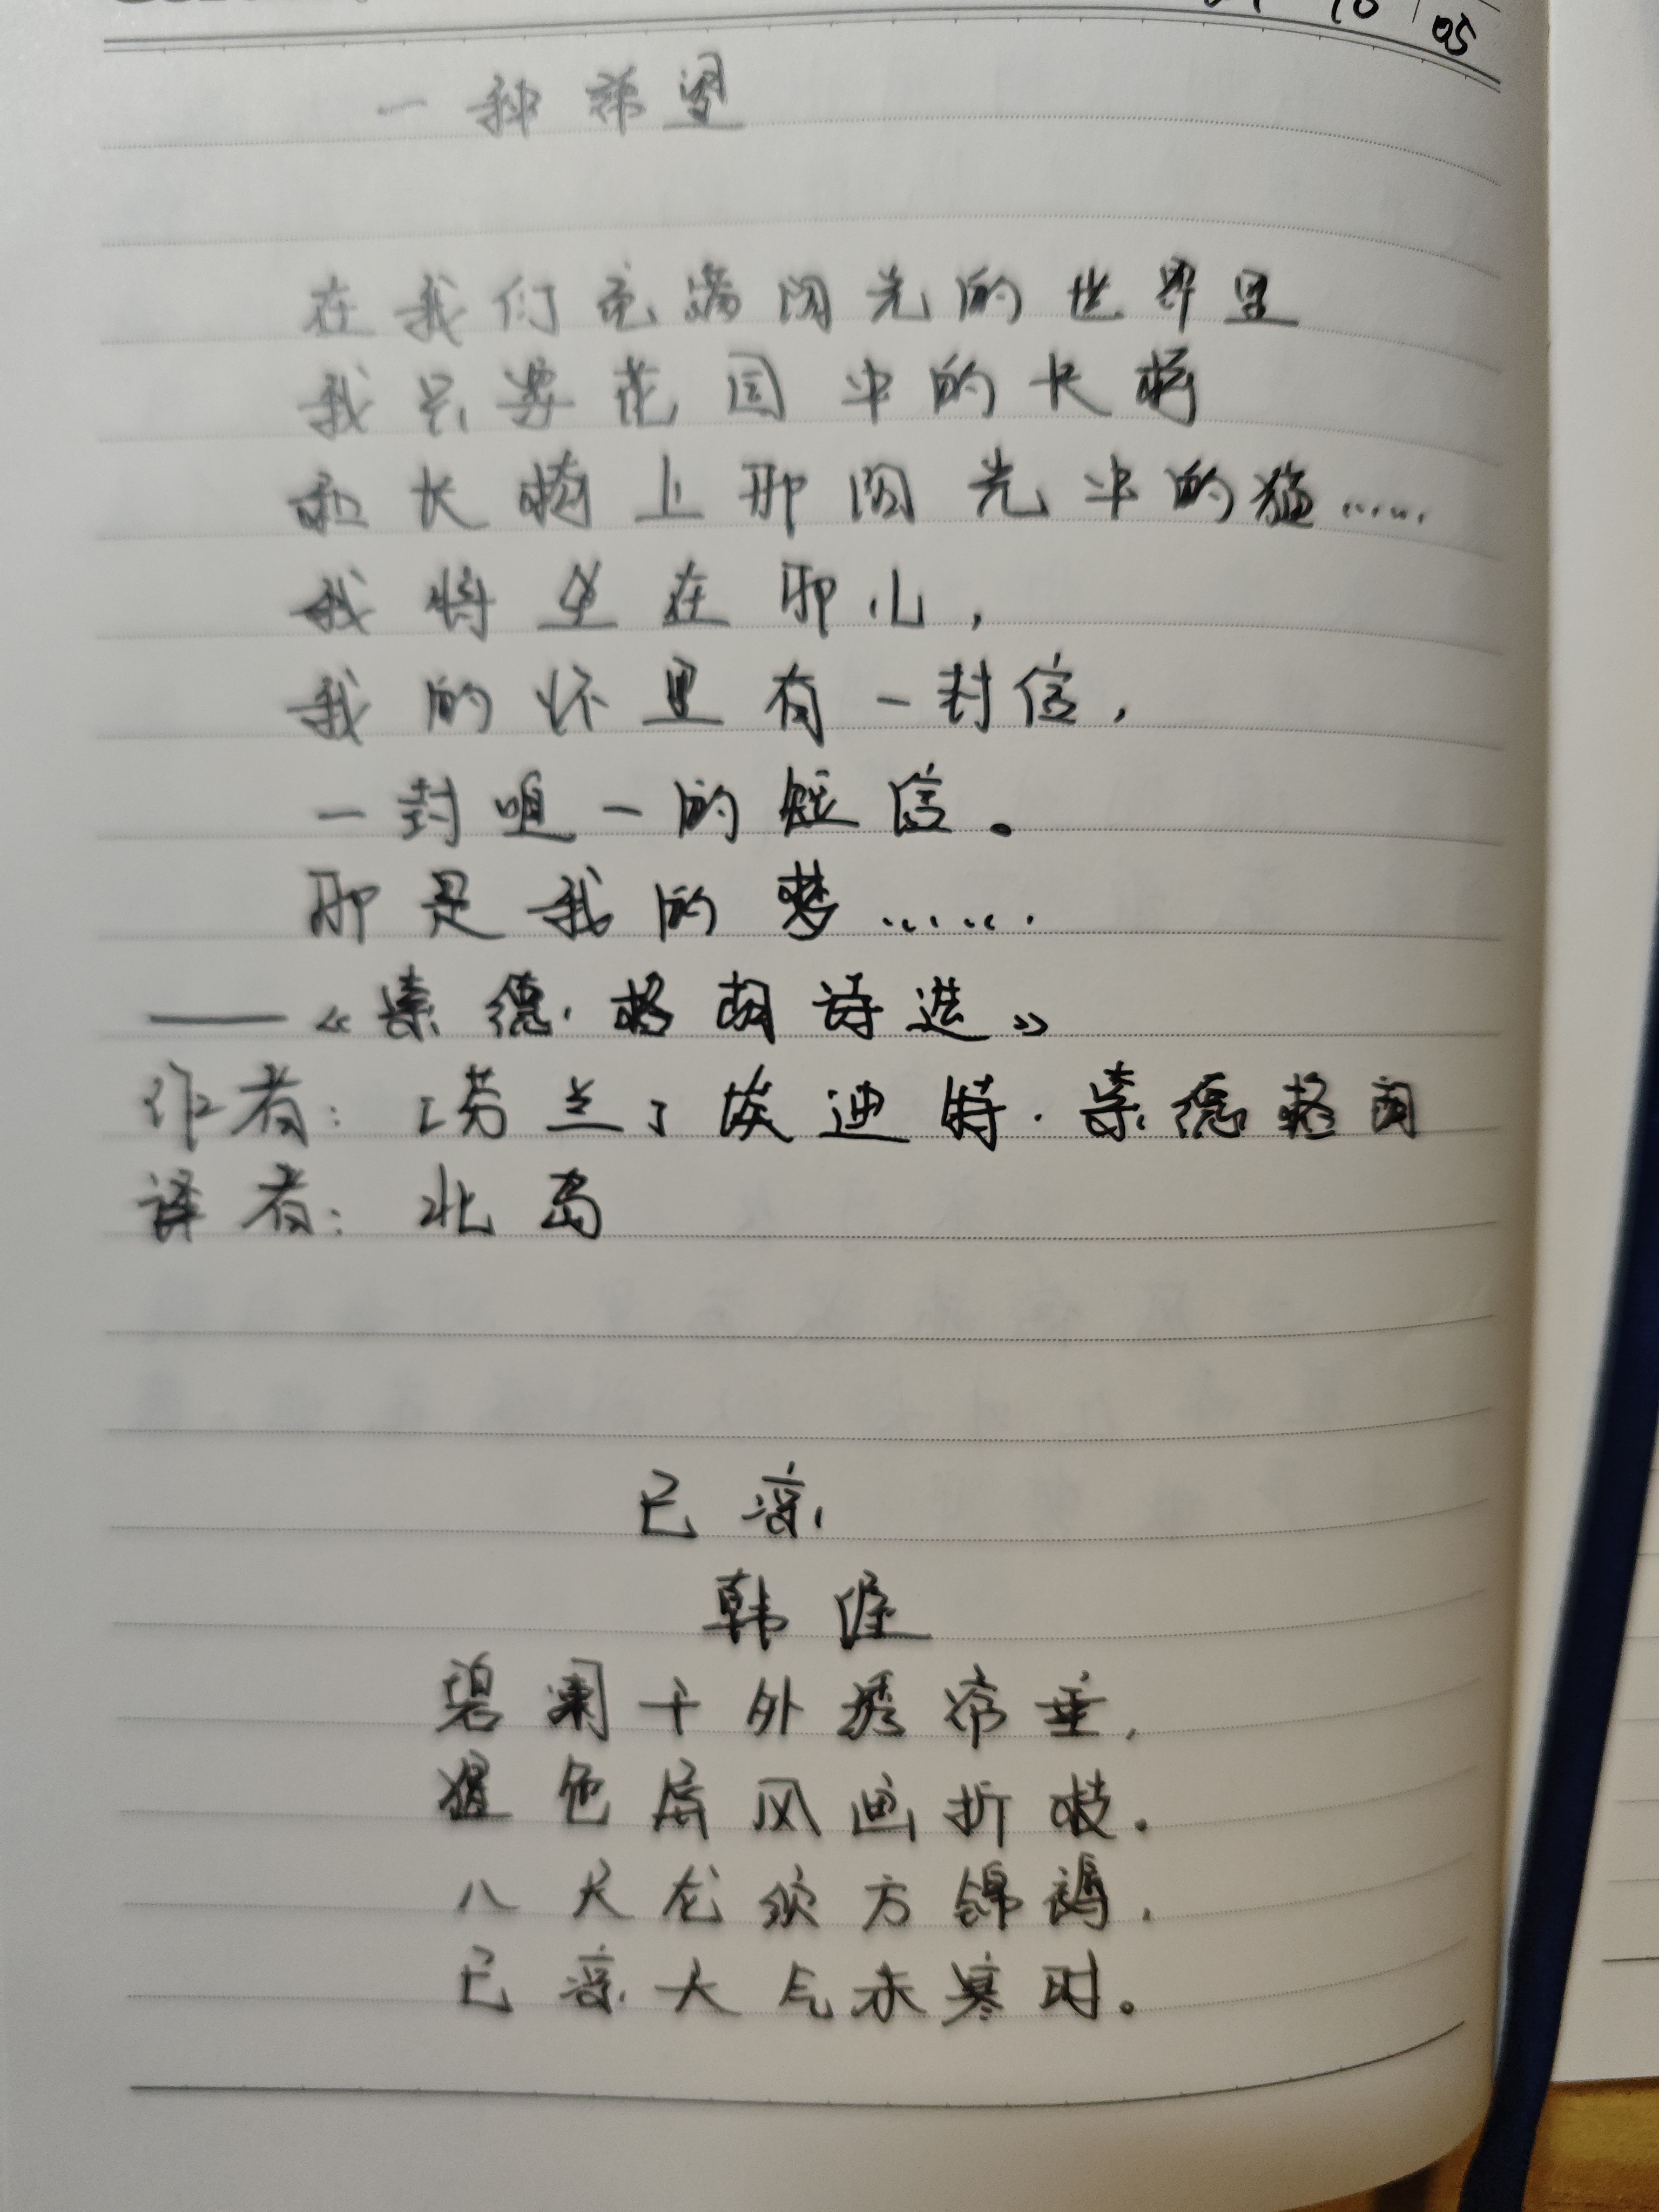 10 05
一种希望
在我们充满阳光的世界里
我只要花园中的长椅
和长椅上那阳光中的猫……
我将坐在那儿，
我的怀里有一封信，
一封唯一的短信。
那是我的梦……
——《索德·格朗诗选》
作者：[芬兰]埃迪特·索德格朗
译者：北岛
已凉
韩偓
碧阑干外绣帘垂，
猩色屏风画折枝。
八尺龙须方锦褥，
已凉天气未寒时。